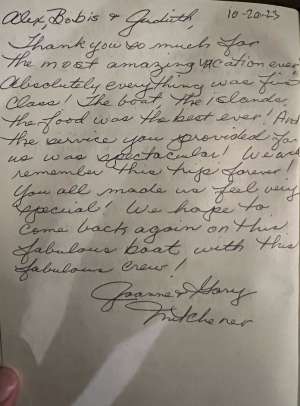 Alex, Bobis & Judith, 10-20-23
Thank you so much for
the most amazing vacation ever
Absolutely everything was first
Class! The boat, the islands,
the food was the best ever! And
the service you provided for
us was spectacular! We will
remember this trip forever!
You all made us feel very
special! We hope to
come back again on this
fabulous boat with this
fabulous crew!
Joanne & Gary
Mitchener